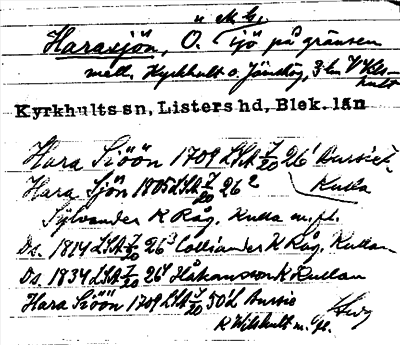 Harasjön, Ö. sjö på gränsen
mell. Kyrkhult o. Jämshög, 3 km V Kyrkhult
Kyrkhults sn, Listers hd, Blek. län
Hara Siöön 1709 LSA 7/20 26¹ Bursie
Kulla
Hara Sjön 1805 LSA 7/20 26²
Sylvander K Råg. Kulla m. fl.
Ds. 1814 LSA 7/20 26³ Colliander K Råg. Kullan
Ds. 1834 LSA 7/20 26⁴ Håkansson K Kullan
Hara Siöön 1709 LSA 7/20 50¹ Bursie
K Vilshult m. fl.